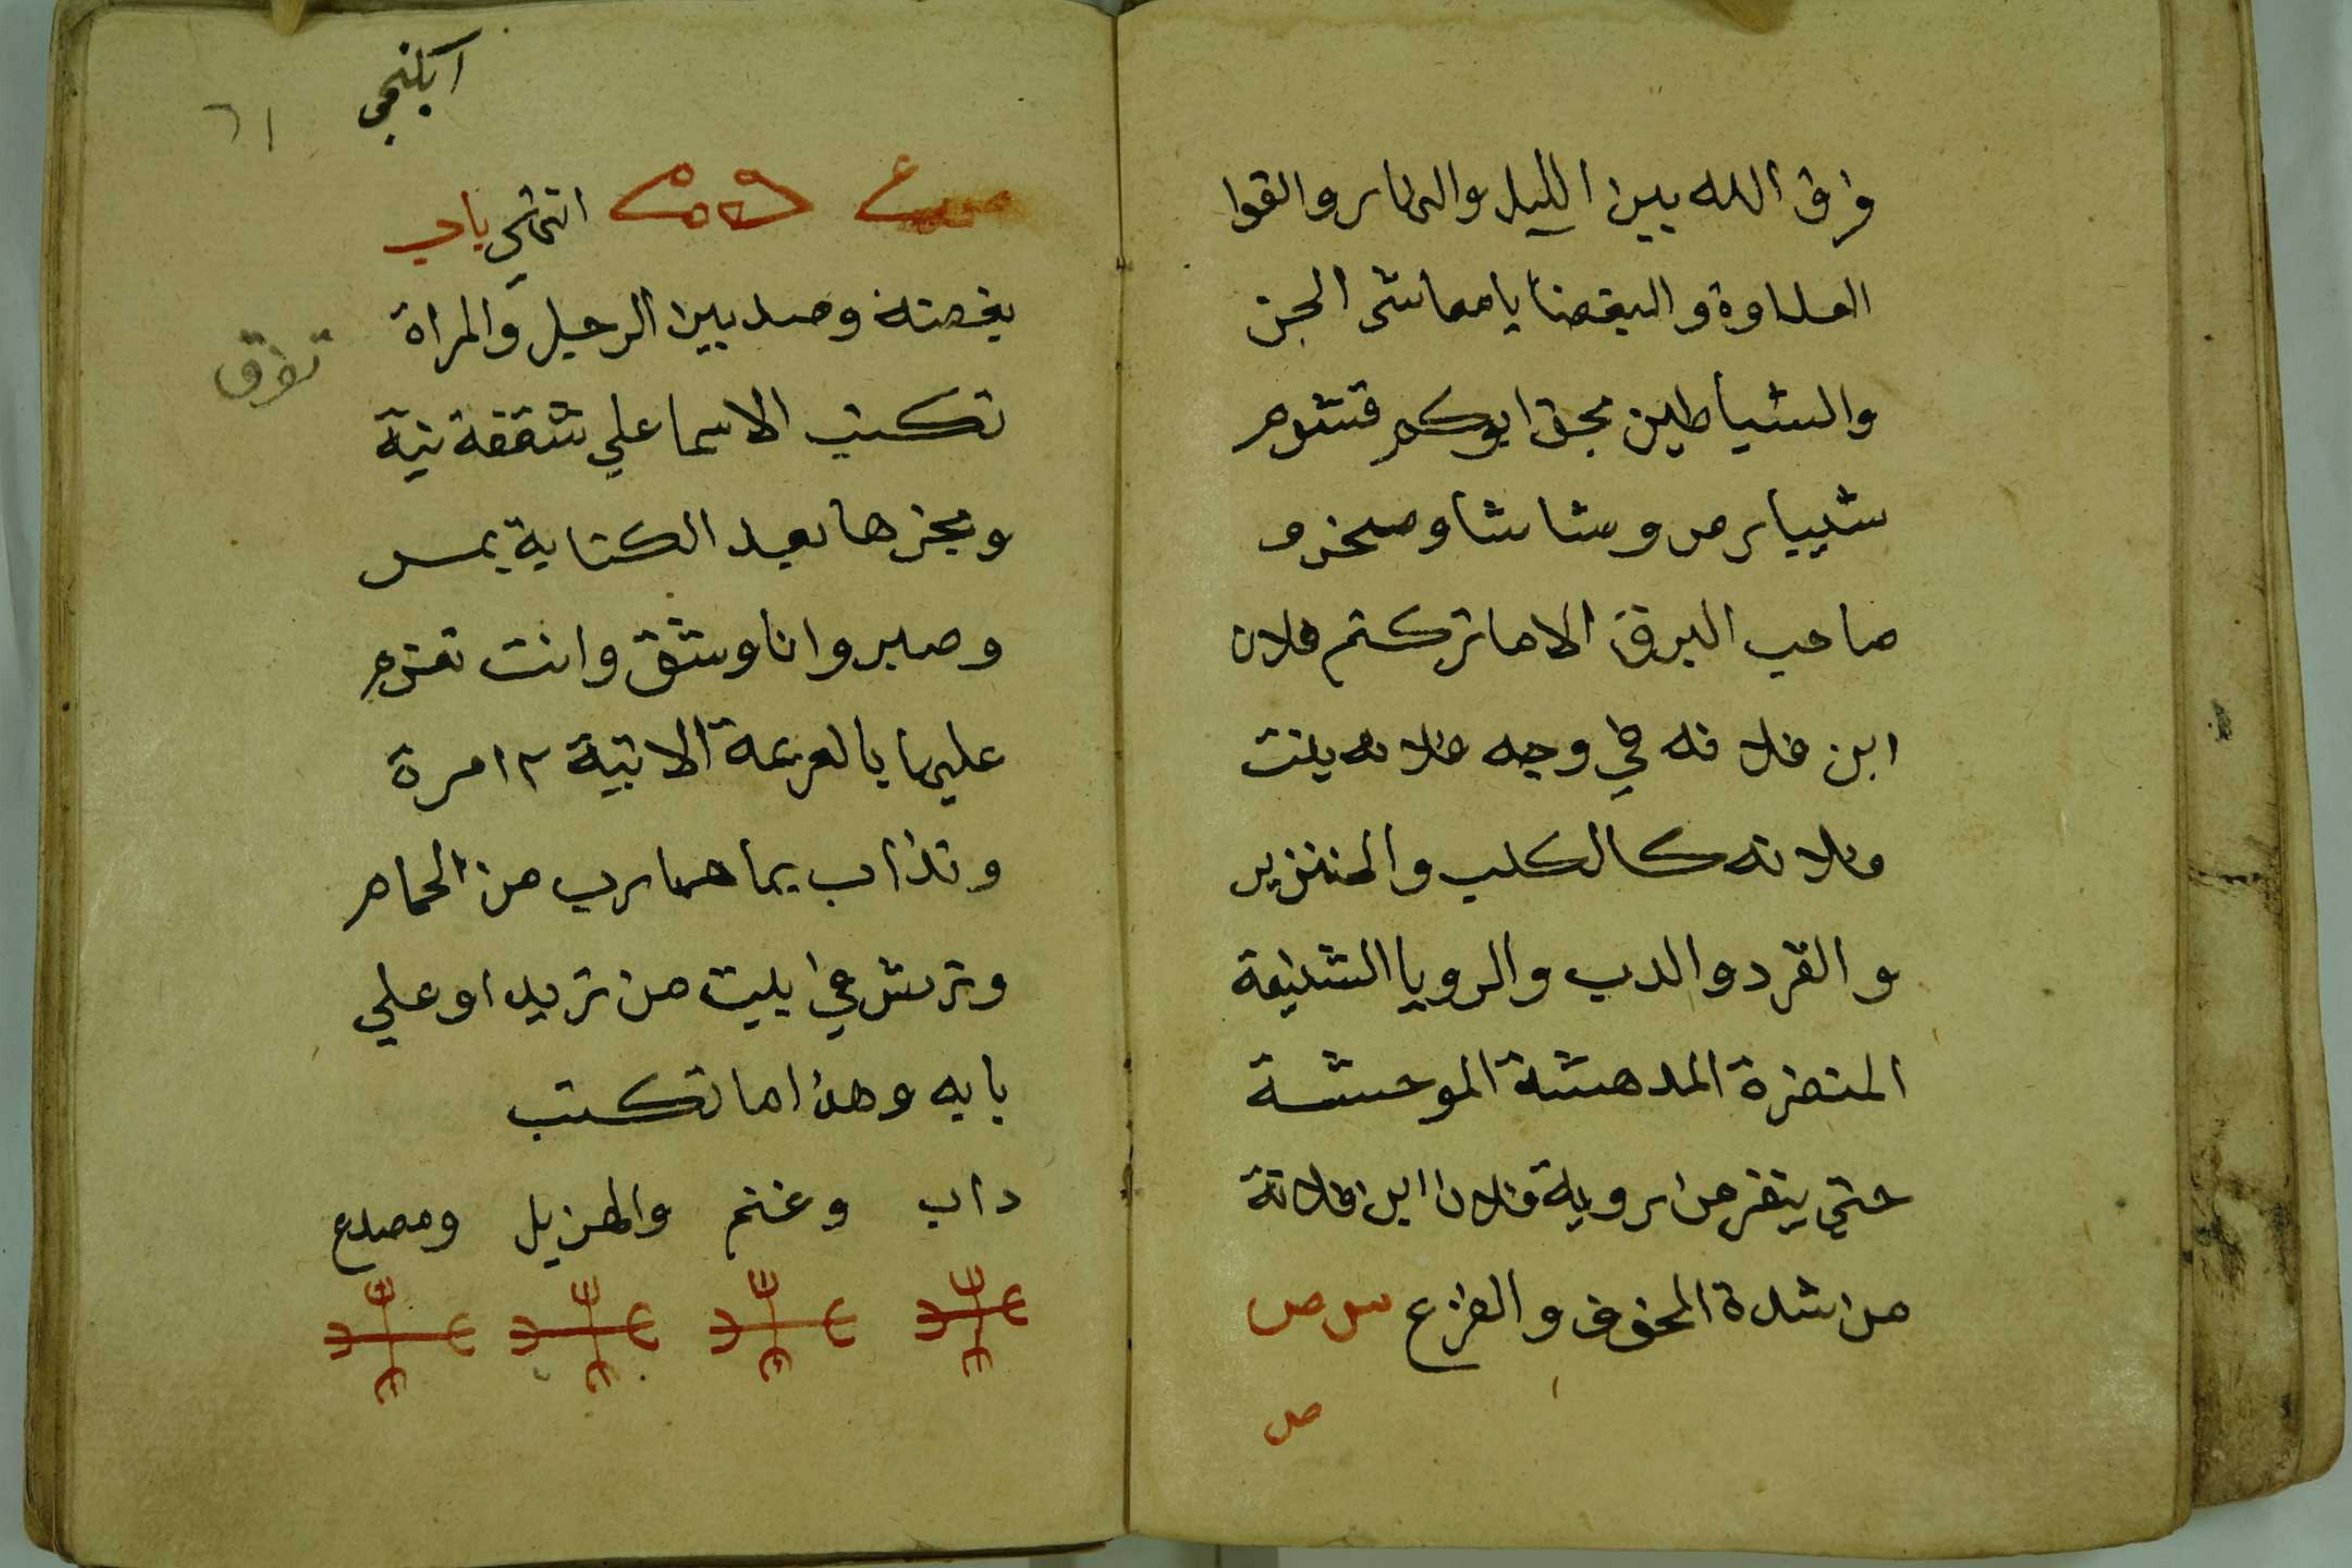 فرق الله بين الليل والنهار والقوا
العداوة والبغضا يا معاشر الجن
والشياطين بحق ابوكم قشوم
شييارم وشاشا وصخرم
صاحب البرق الا ما تركتم فلان
ابن فلانه في وجه فلانه بنت
فلانه كالكلب والخنزير
والقرد والدب والرويا الشنيعة
المنفرة المدهشة الموحشة
حتي ينفر من روية فلان ابن فلانة
من شدة الخوف والفزع
انتهي باب
٦١
بغضته وصد بين الرجل والمراة
تفرق
تكتب الاسما علي شقفة نية
وبخرها بعد الكتابة بمر
وصبر وانا وشق وانت تعزم
عليها بالعزيمة الاتية ١٢ مرة
وتذاب بماء هارب من الحمام
وترش في بيت من تريد او علي
بابه وهذا ما تكتب
داب وغنم والهزيل ومصدع